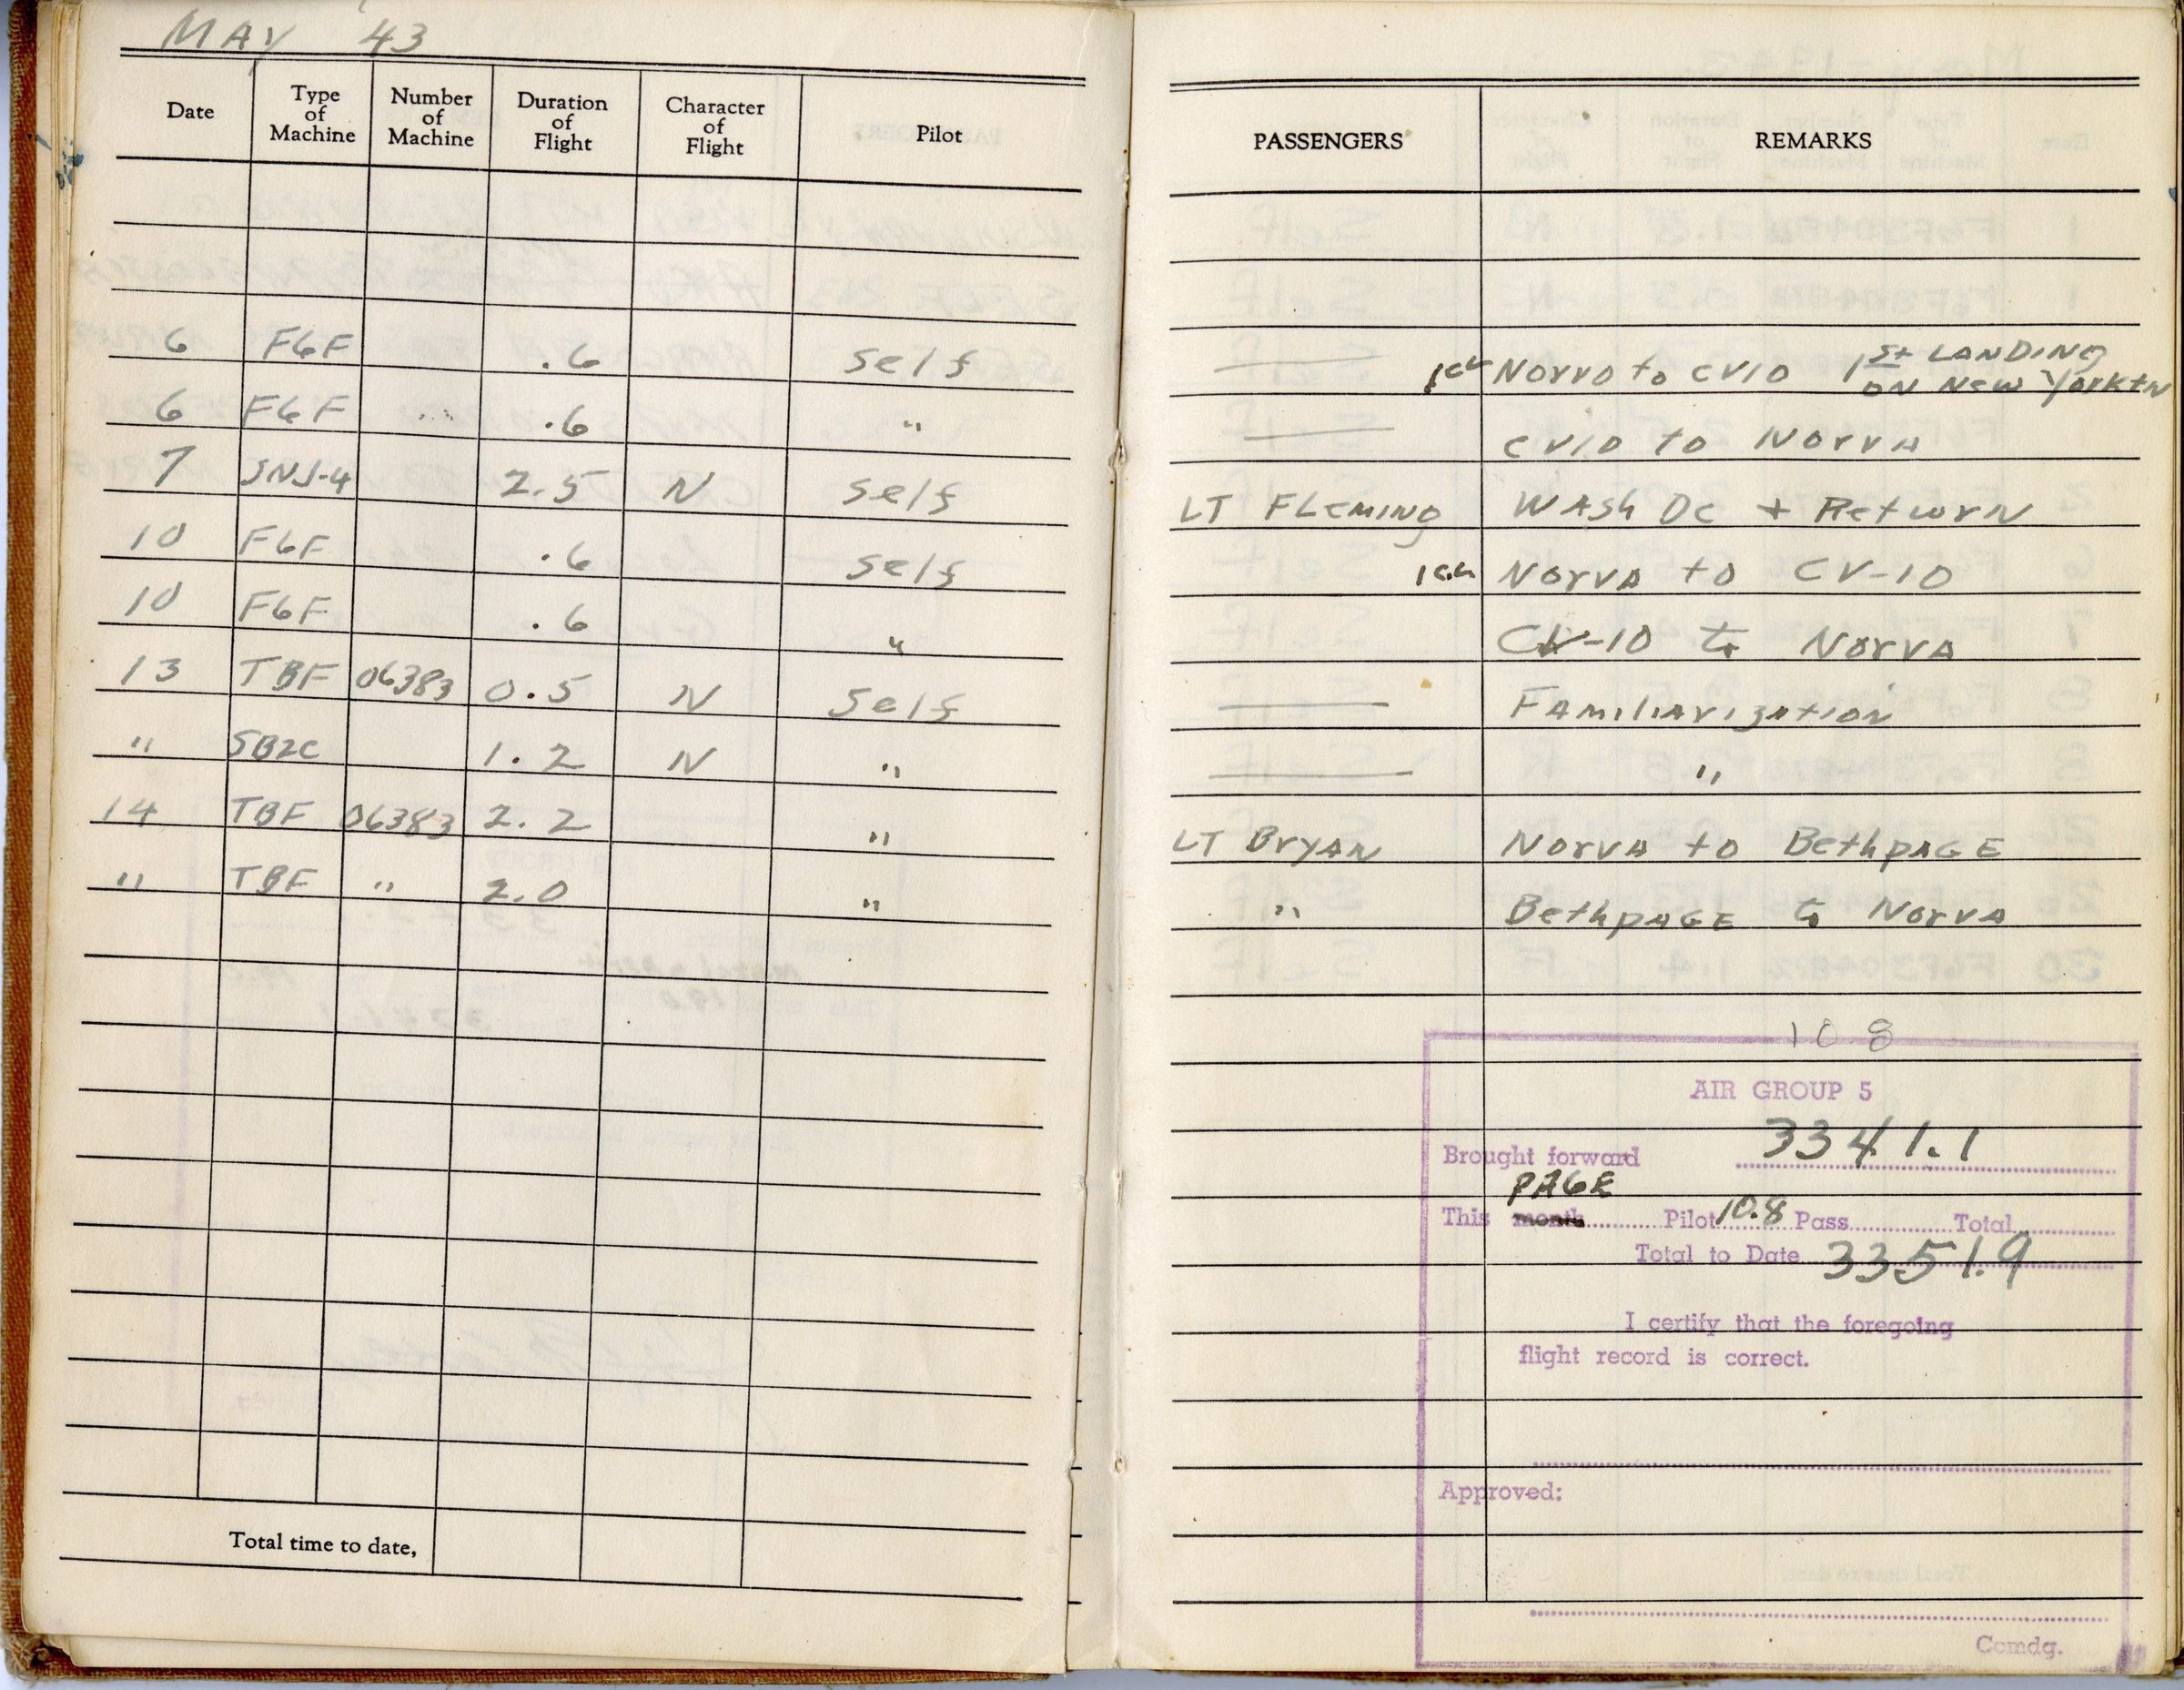 MAY '43
Date Type of Machine Number of Machine Duration of Flight Character of Flight Pilot PASSENGERS REMARKS
6 F6F .6 Self — Norva to CV10 1st LANDING ON New YorktN
6 F6F .6 " — CV10 to Norva
7 SNJ-4 2.5 N Self LT FLEMING WASH DC + Return
10 F6F .6 Self Norva to CV-10
10 F6F .6 " CV-10 to Norva
13 TBF 06383 0.5 N Self — Familiarization
" SB2C 1.2 N " — "
14 TBF 06383 2.2 " LT BryAN Norva to BethpAGE
" TBF " 2.0 " " BethpAGE to Norva
10.8
AIR GROUP 5
Brought forward 3341.1
PAGE
This month Pilot 10.8 Pass Total
Total to Date 3351.9
I certify that the foregoing
flight record is correct.
Approved:
Total time to date,
Comdg.